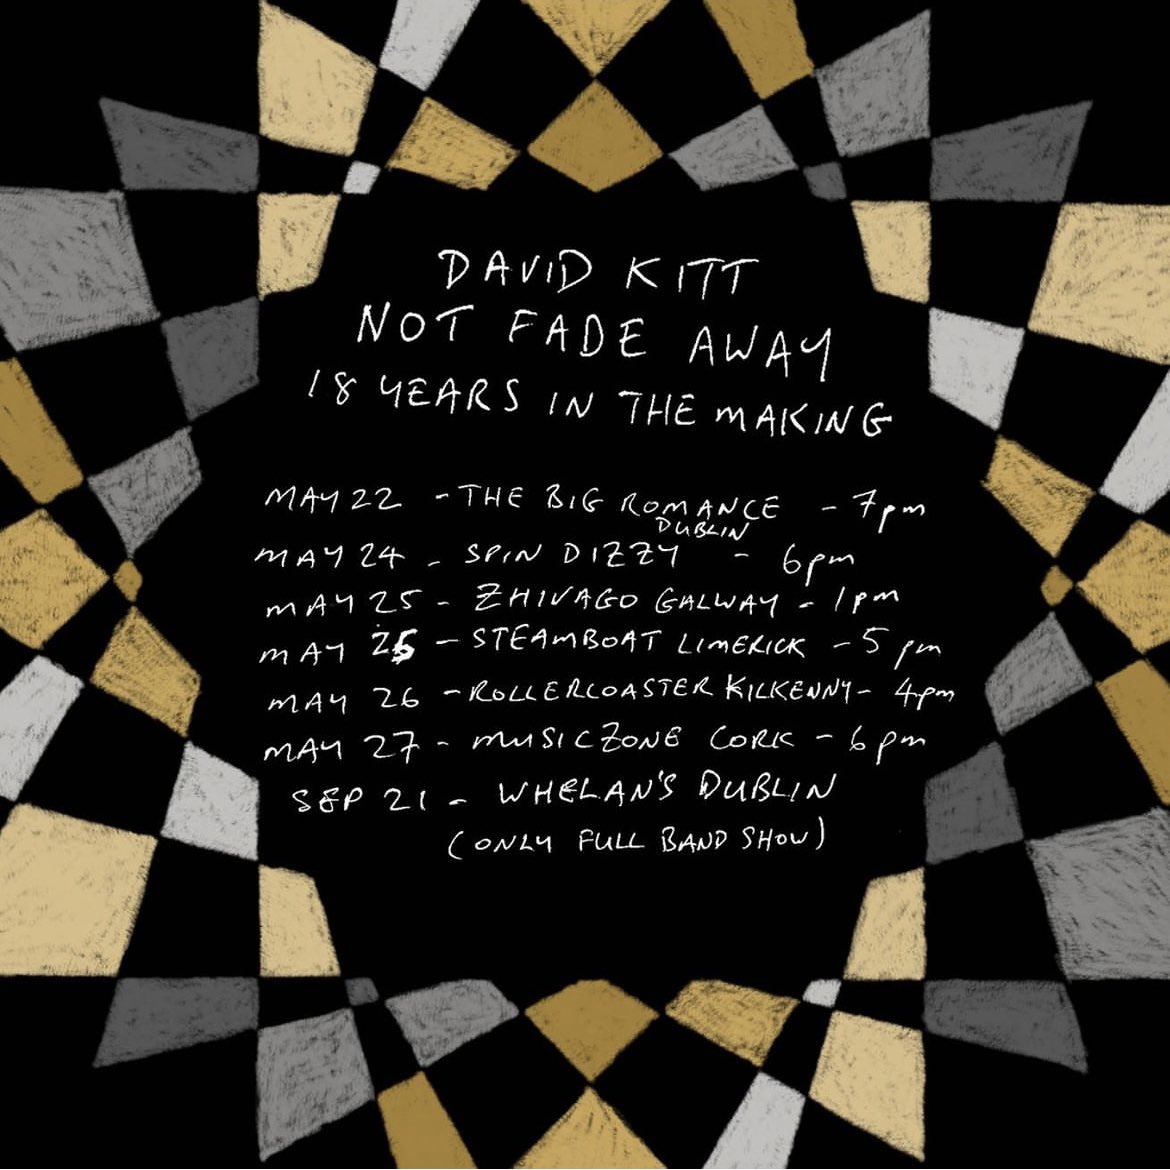 DAVID KITT
NOT FADE AWAY
18 YEARS IN THE MAKING
MAY 22 - THE BIG ROMANCE - 7pm
DUBLIN
MAY 24 - SPIN DIZZY - 6pm
MAY 25 - ZHIVAGO GALWAY - 1pm
MAY 25 - STEAMBOAT LIMERICK - 5pm
MAY 26 - ROLLERCOASTER KILKENNY - 4pm
MAY 27 - MUSICZONE CORK - 6pm
SEP 21 - WHELAN'S DUBLIN
(ONLY FULL BAND SHOW)